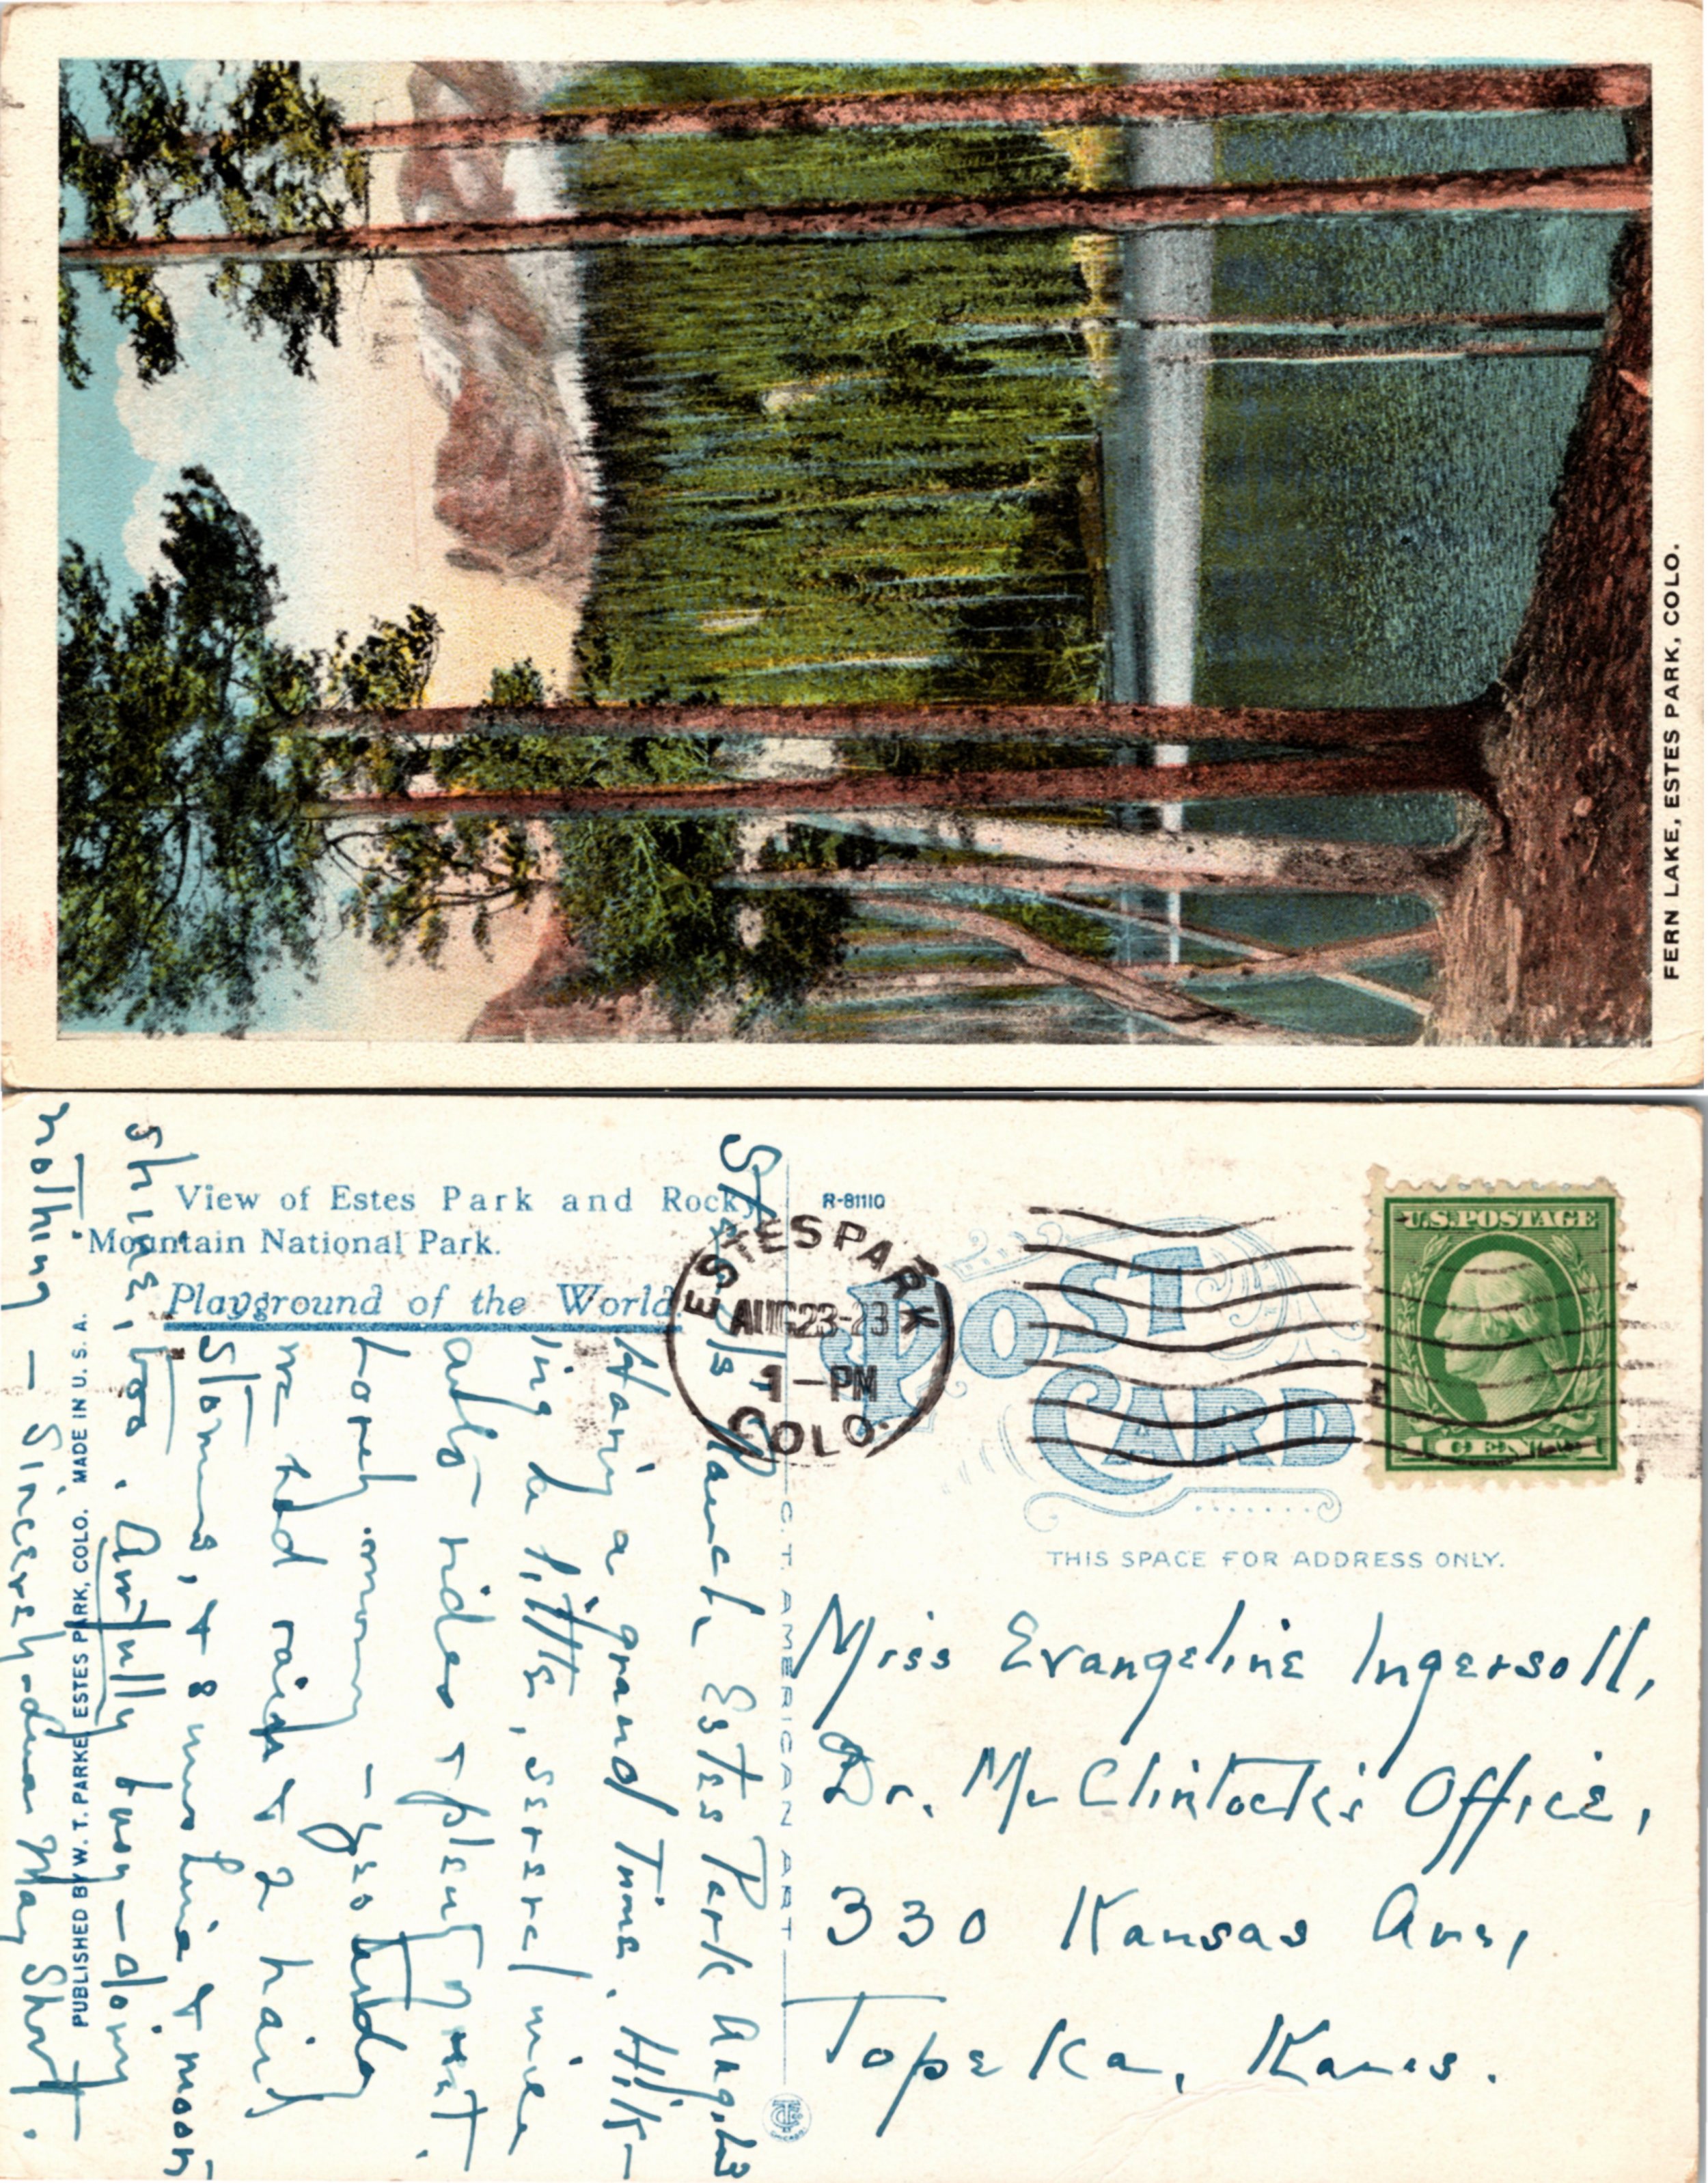 FERN LAKE, ESTES PARK, COLO.
View of Estes Park and Rocky
Mountain National Park.
Playground of the World
R-81110
POST
CARD
ESTES PARK
AUG 23-23
1-PM
COLO.
U.S. POSTAGE
1 CENT
THIS SPACE FOR ADDRESS ONLY.
Miss Evangeline Ingersoll,
Dr. Mc Clintock's Office,
330 Kansas Ave,
Topeka, Kans.
C. T. AMERICAN ART
PUBLISHED BY W. T. PARKE ESTES PARK, COLO. MADE IN U. S. A.
Ranch Estes Park Aug.
Having a grand time. Hik-
ing a little, several mile
rides & plenty
- Yesterday
we had rain & 2 hail
storms, & 8 & moon
shine, too. Awfully busy - doing
nothing - Sincerely - May Short.